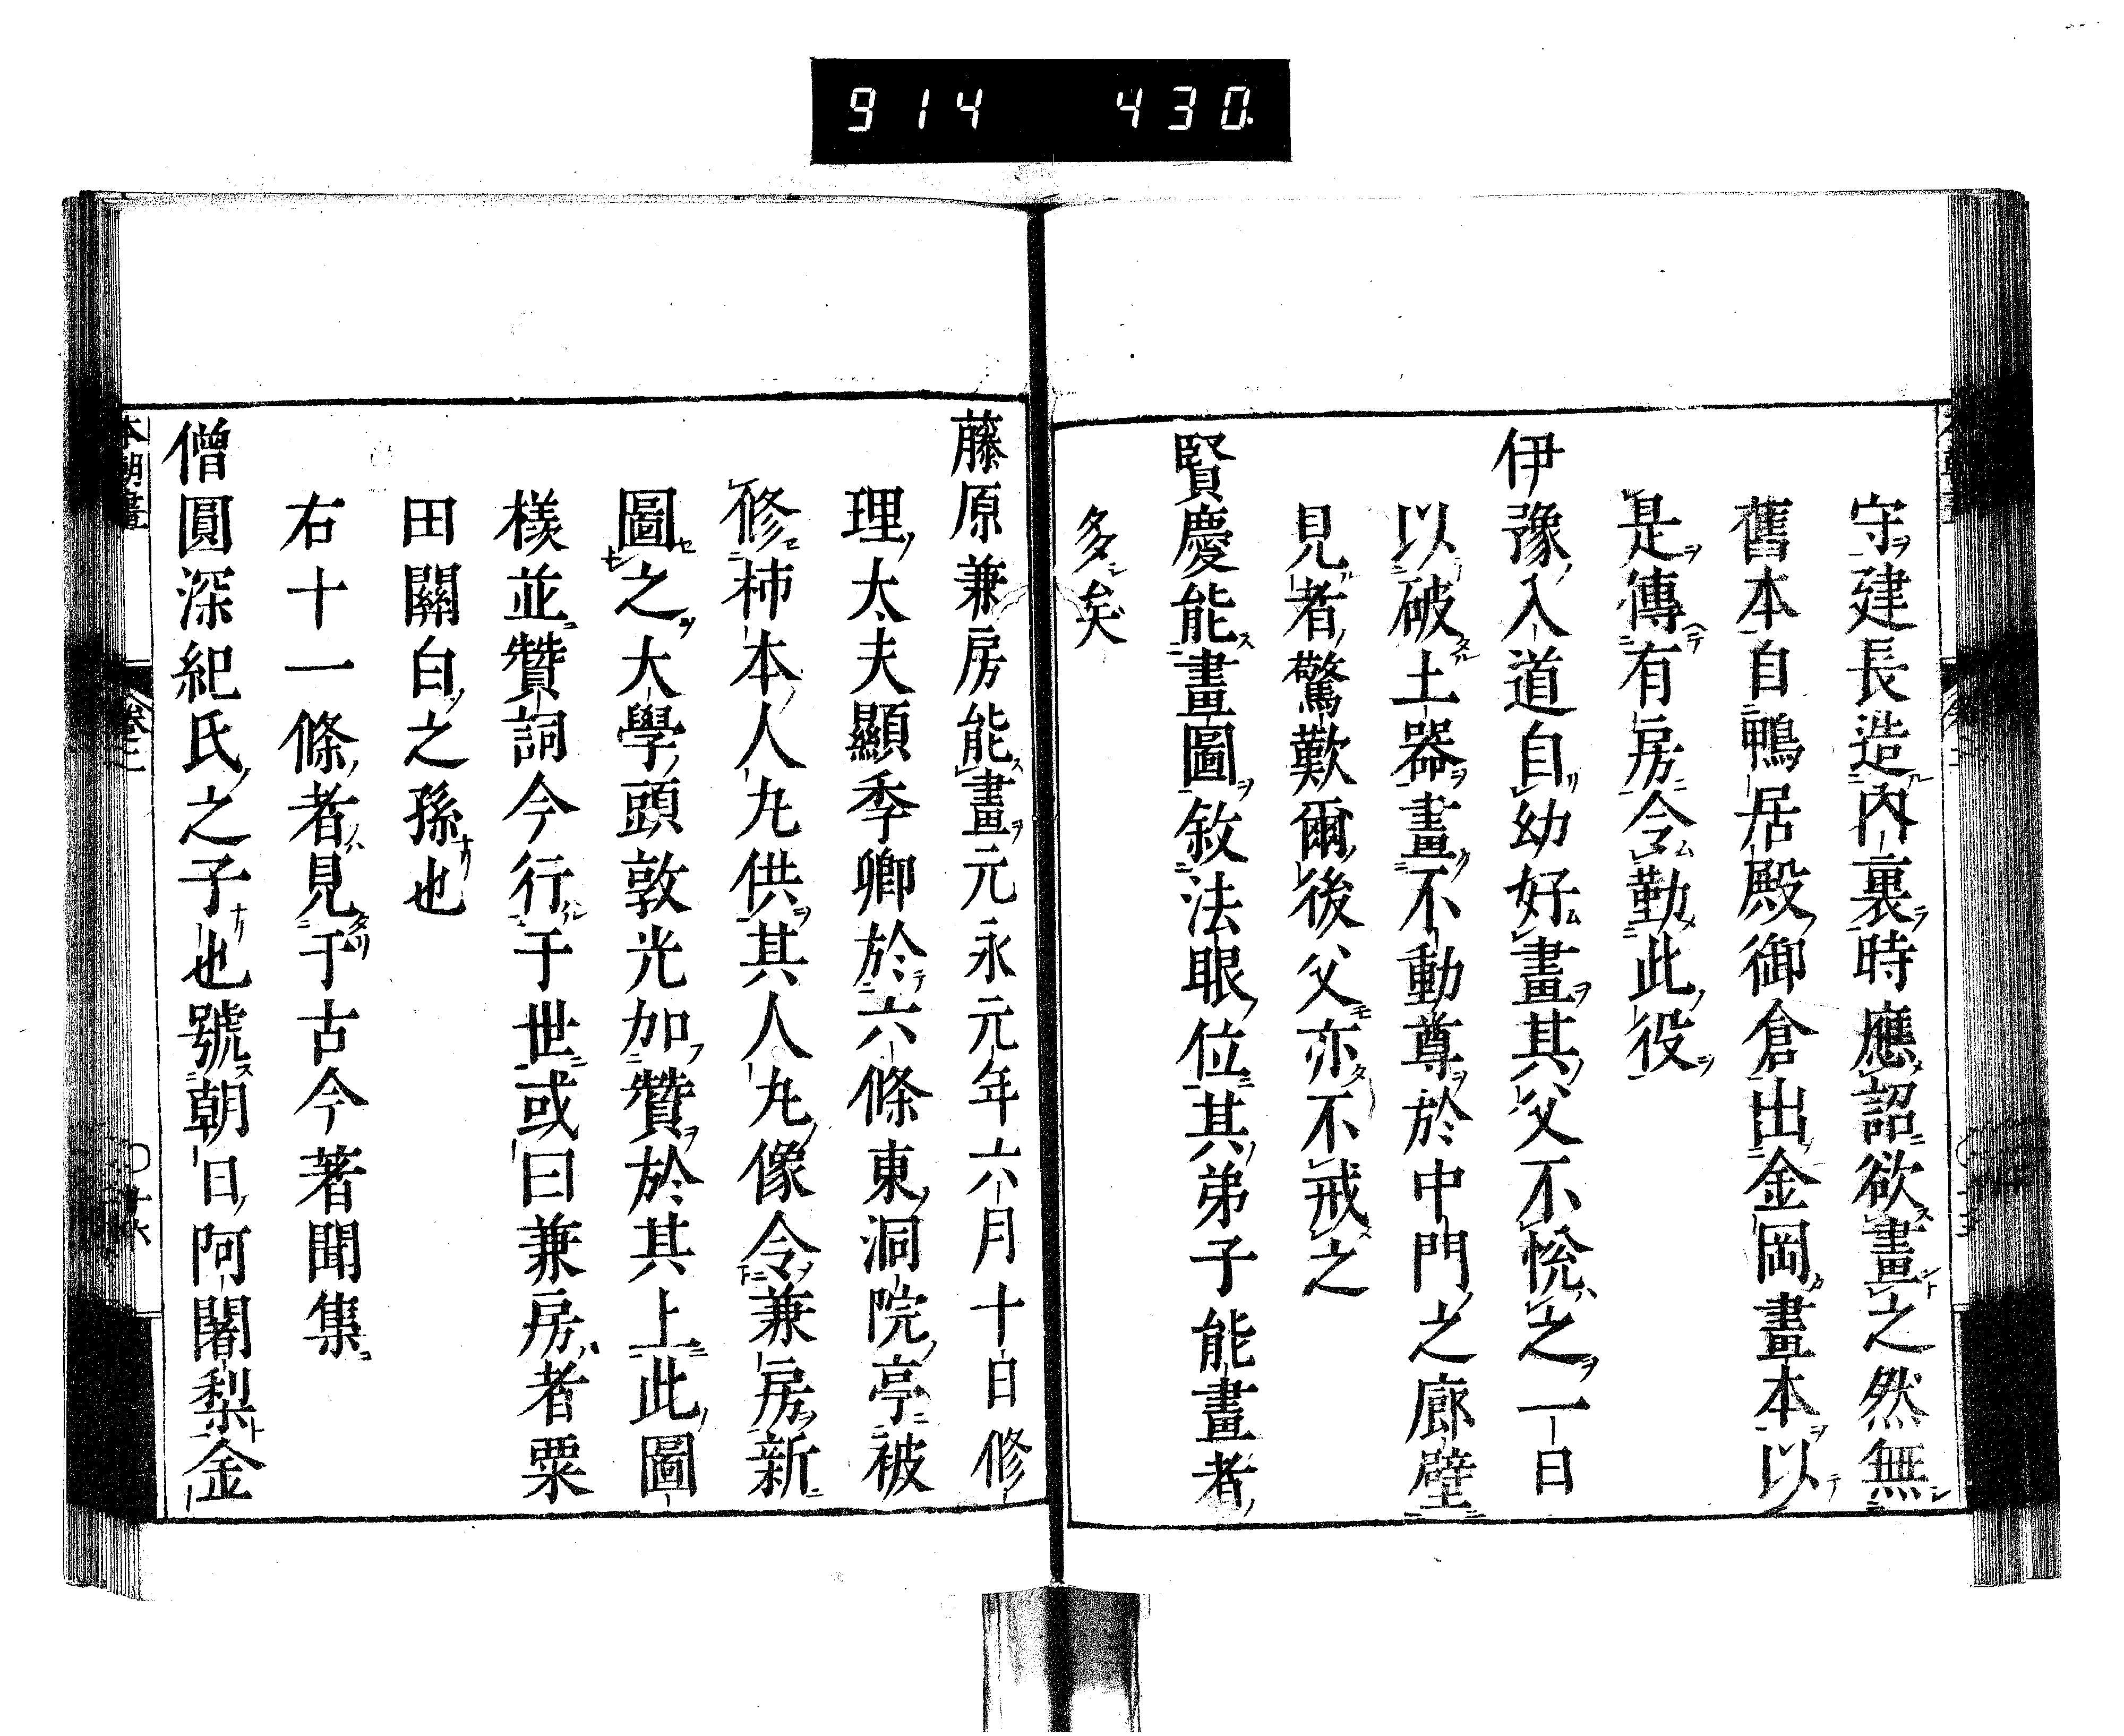 914 430
守建長造內裏時應詔欲畫之然無
舊本自鴨居殿御倉出金岡畫本以
是傳有房令勤此役
伊豫入道自幼好畫其父不悅之一日
以破土器畫不動尊於中門之廊壁
見者驚歎爾後父亦不戒之
賢慶能畫圖敘法眼位其弟子能畫者
多矣
藤原兼房能畫元永元年六月十日修
理太夫顯季卿於六條東洞院亭被
修柿本人丸供其人丸像令兼房新
圖之大學頭敦光加贊於其上此圖
樣並贊詞今行于世或曰兼房者粟
田關白之孫也
右十一條者見于古今著聞集
僧圓深紀氏之子也號朝日阿闍梨金
本朝畫 卷二 十六